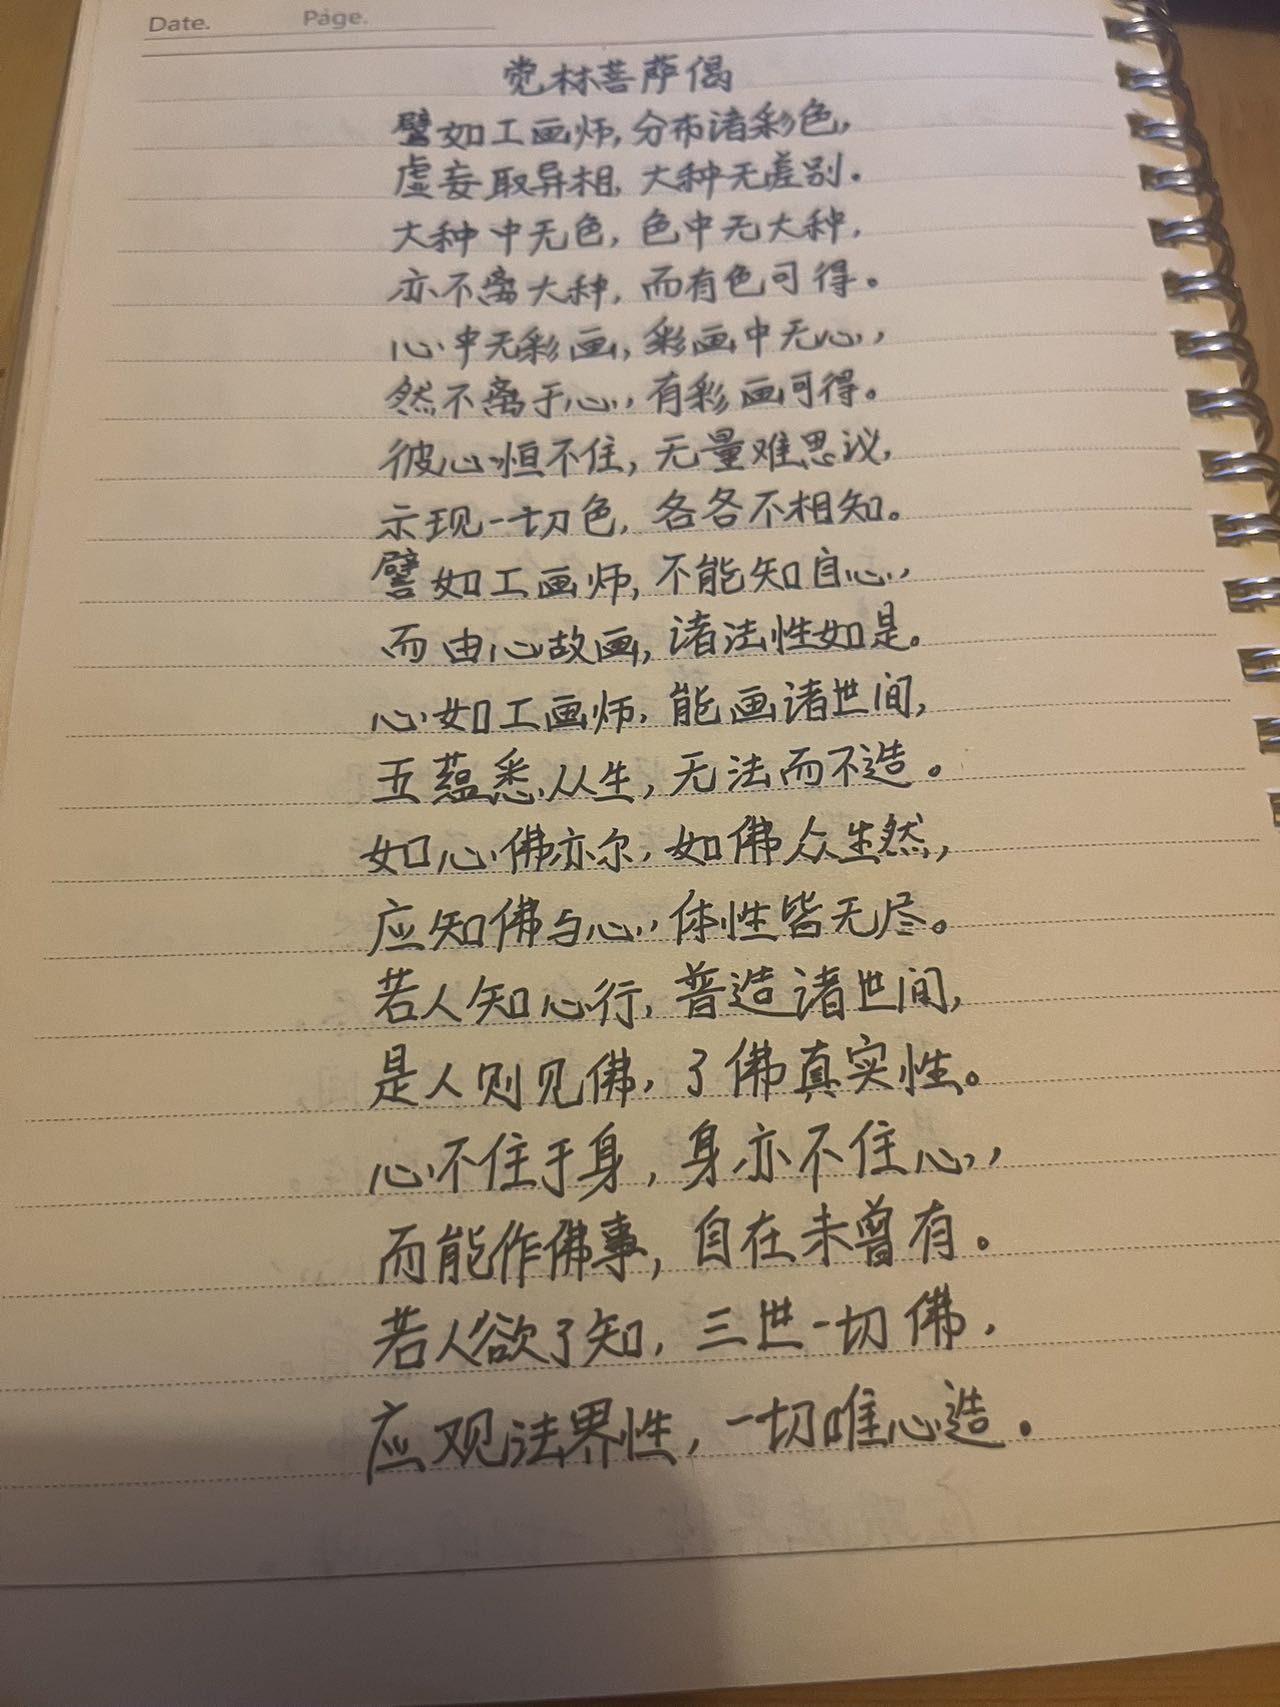 Date.
Page.
觉林菩萨偈
譬如工画师,分布诸彩色,
虚妄取异相,大种无差别.
大种中无色,色中无大种,
亦不离大种,而有色可得。
心中无彩画,彩画中无心,
然不离于心,有彩画可得。
彼心恒不住,无量难思议,
示现一切色,各各不相知。
譬如工画师,不能知自心,
而由心故画,诸法性如是。
心如工画师,能画诸世间,
五蕴悉从生,无法而不造。
如心佛亦尔,如佛众生然,
应知佛与心,体性皆无尽。
若人知心行,普造诸世间,
是人则见佛,了佛真实性。
心不住于身,身亦不住心,
而能作佛事,自在未曾有。
若人欲了知,三世一切佛,
应观法界性,一切唯心造.